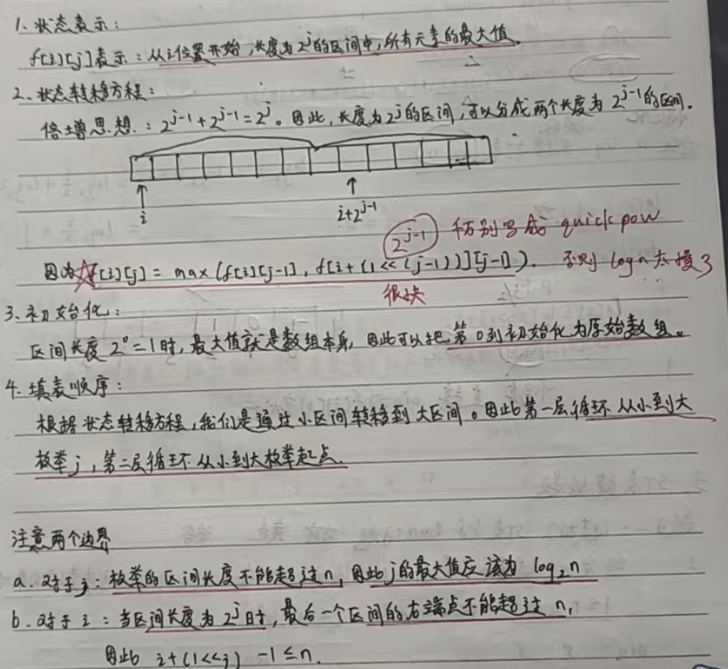 1. 状态表示：
f[i][j]表示：从i位置开始，长度为2^j的区间中，所有元素的最大值。
2. 状态转移方程：
倍增思想：2^{j-1}+2^{j-1}=2^j。因此，长度为2^j的区间，可以分成两个长度为2^{j-1}的区间。
i
i+2^{j-1}
2^{j-1} 千万别写成 quick pow
因为☆f[i][j] = max(f[i][j-1], f[i+(1<<(j-1))][j-1]). 否则 logn 太慢了
很快
3. 初始化：
区间长度2^0=1时，最大值就是数组本身，因此可以把第0列初始化为原始数组。
4. 填表顺序：
根据状态转移方程，我们是通过小区间转移到大区间。因此第一层循环从小到大
枚举j，第二层循环从小到大枚举起点.
注意两个边界
a. 对于j：枚举的区间长度不能超过n，因此j的最大值应该为log₂n
b. 对于i：当区间长度为2^j时，最后一个区间的右端点不能超过n，
因此 i+(1<<j) -1≤n.